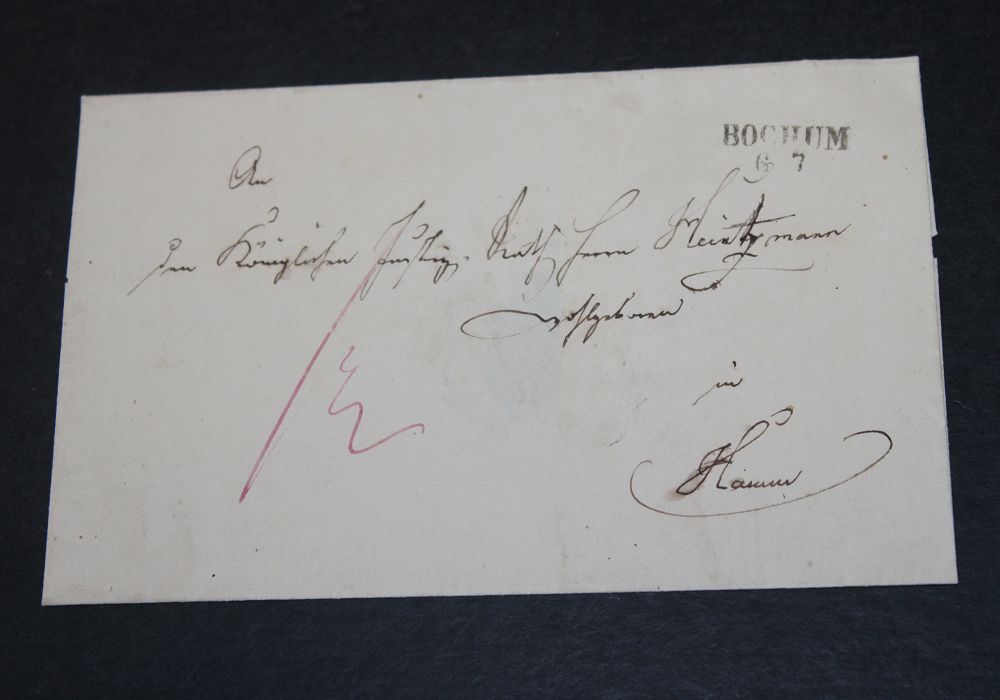 BOCHUM
6 7
An
den Königlichen Justiz-Rath Herrn Heintzmann
Wohlgeboren
in
Hamm